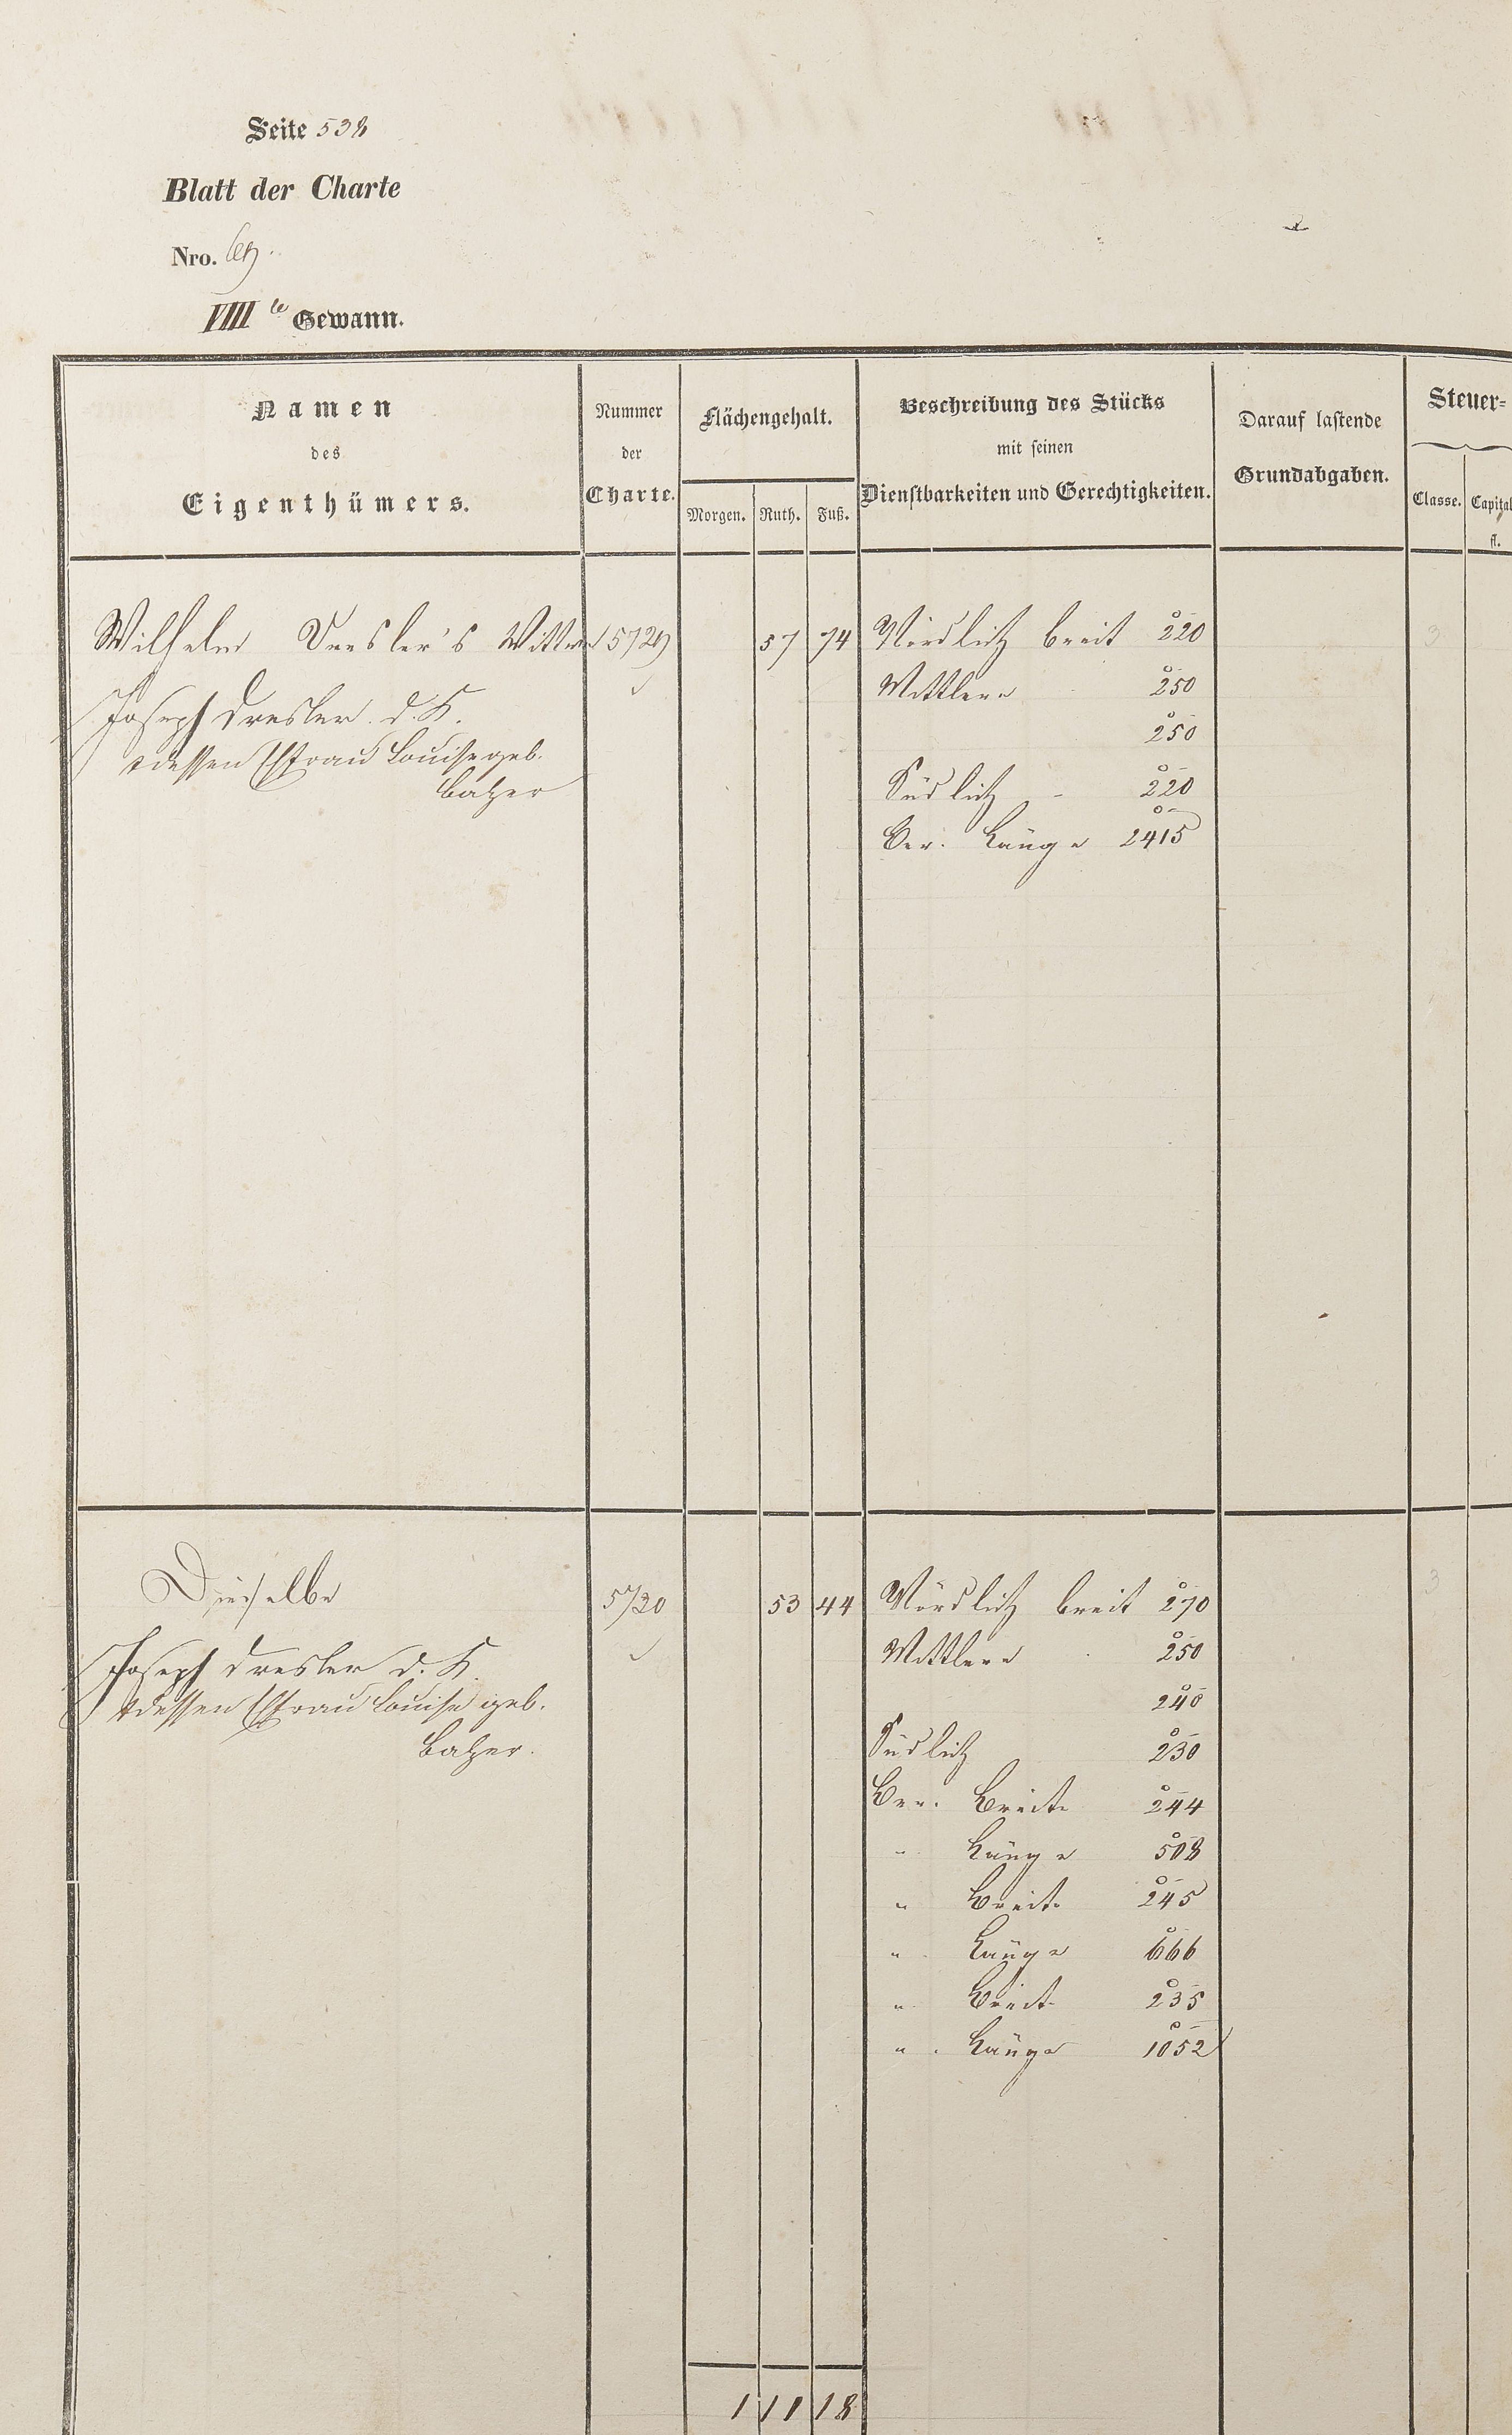 Seite 538
Blatt der Charte
Nro.
VIII te Gewann.
Namen des Eigenthümers.
Nummer der Charte.
Flächengehalt.
Morgen. Ruth. Fuß.
Beschreibung des Stücks
mit seinen
Dienstbarkeiten und Gerechtigkeiten.
Darauf lastende
Grundabgaben.
Steuer=
Classe. Capital
fl.
Wilhelm Dresler's Wittwe 5729 57 74 Nördlich breit 220 3
Mittlere 250
Joseph Dresler d. K.
250
dessen Efrau Louise geb.
Balzer
Südlich - 220
Ber. Länge 2415
Dieselbe 5730 53 44 Nördlich breit 270 3
Joseph Dresler d. K.
Mittlere 250
dessen Efrau Louise geb.
240
Balzer.
Südlich 230
Ber. Breite 244
" Länge 508
" Breite 245
" Länge 666
" Breite 235
" Länge 1052
1 11 18